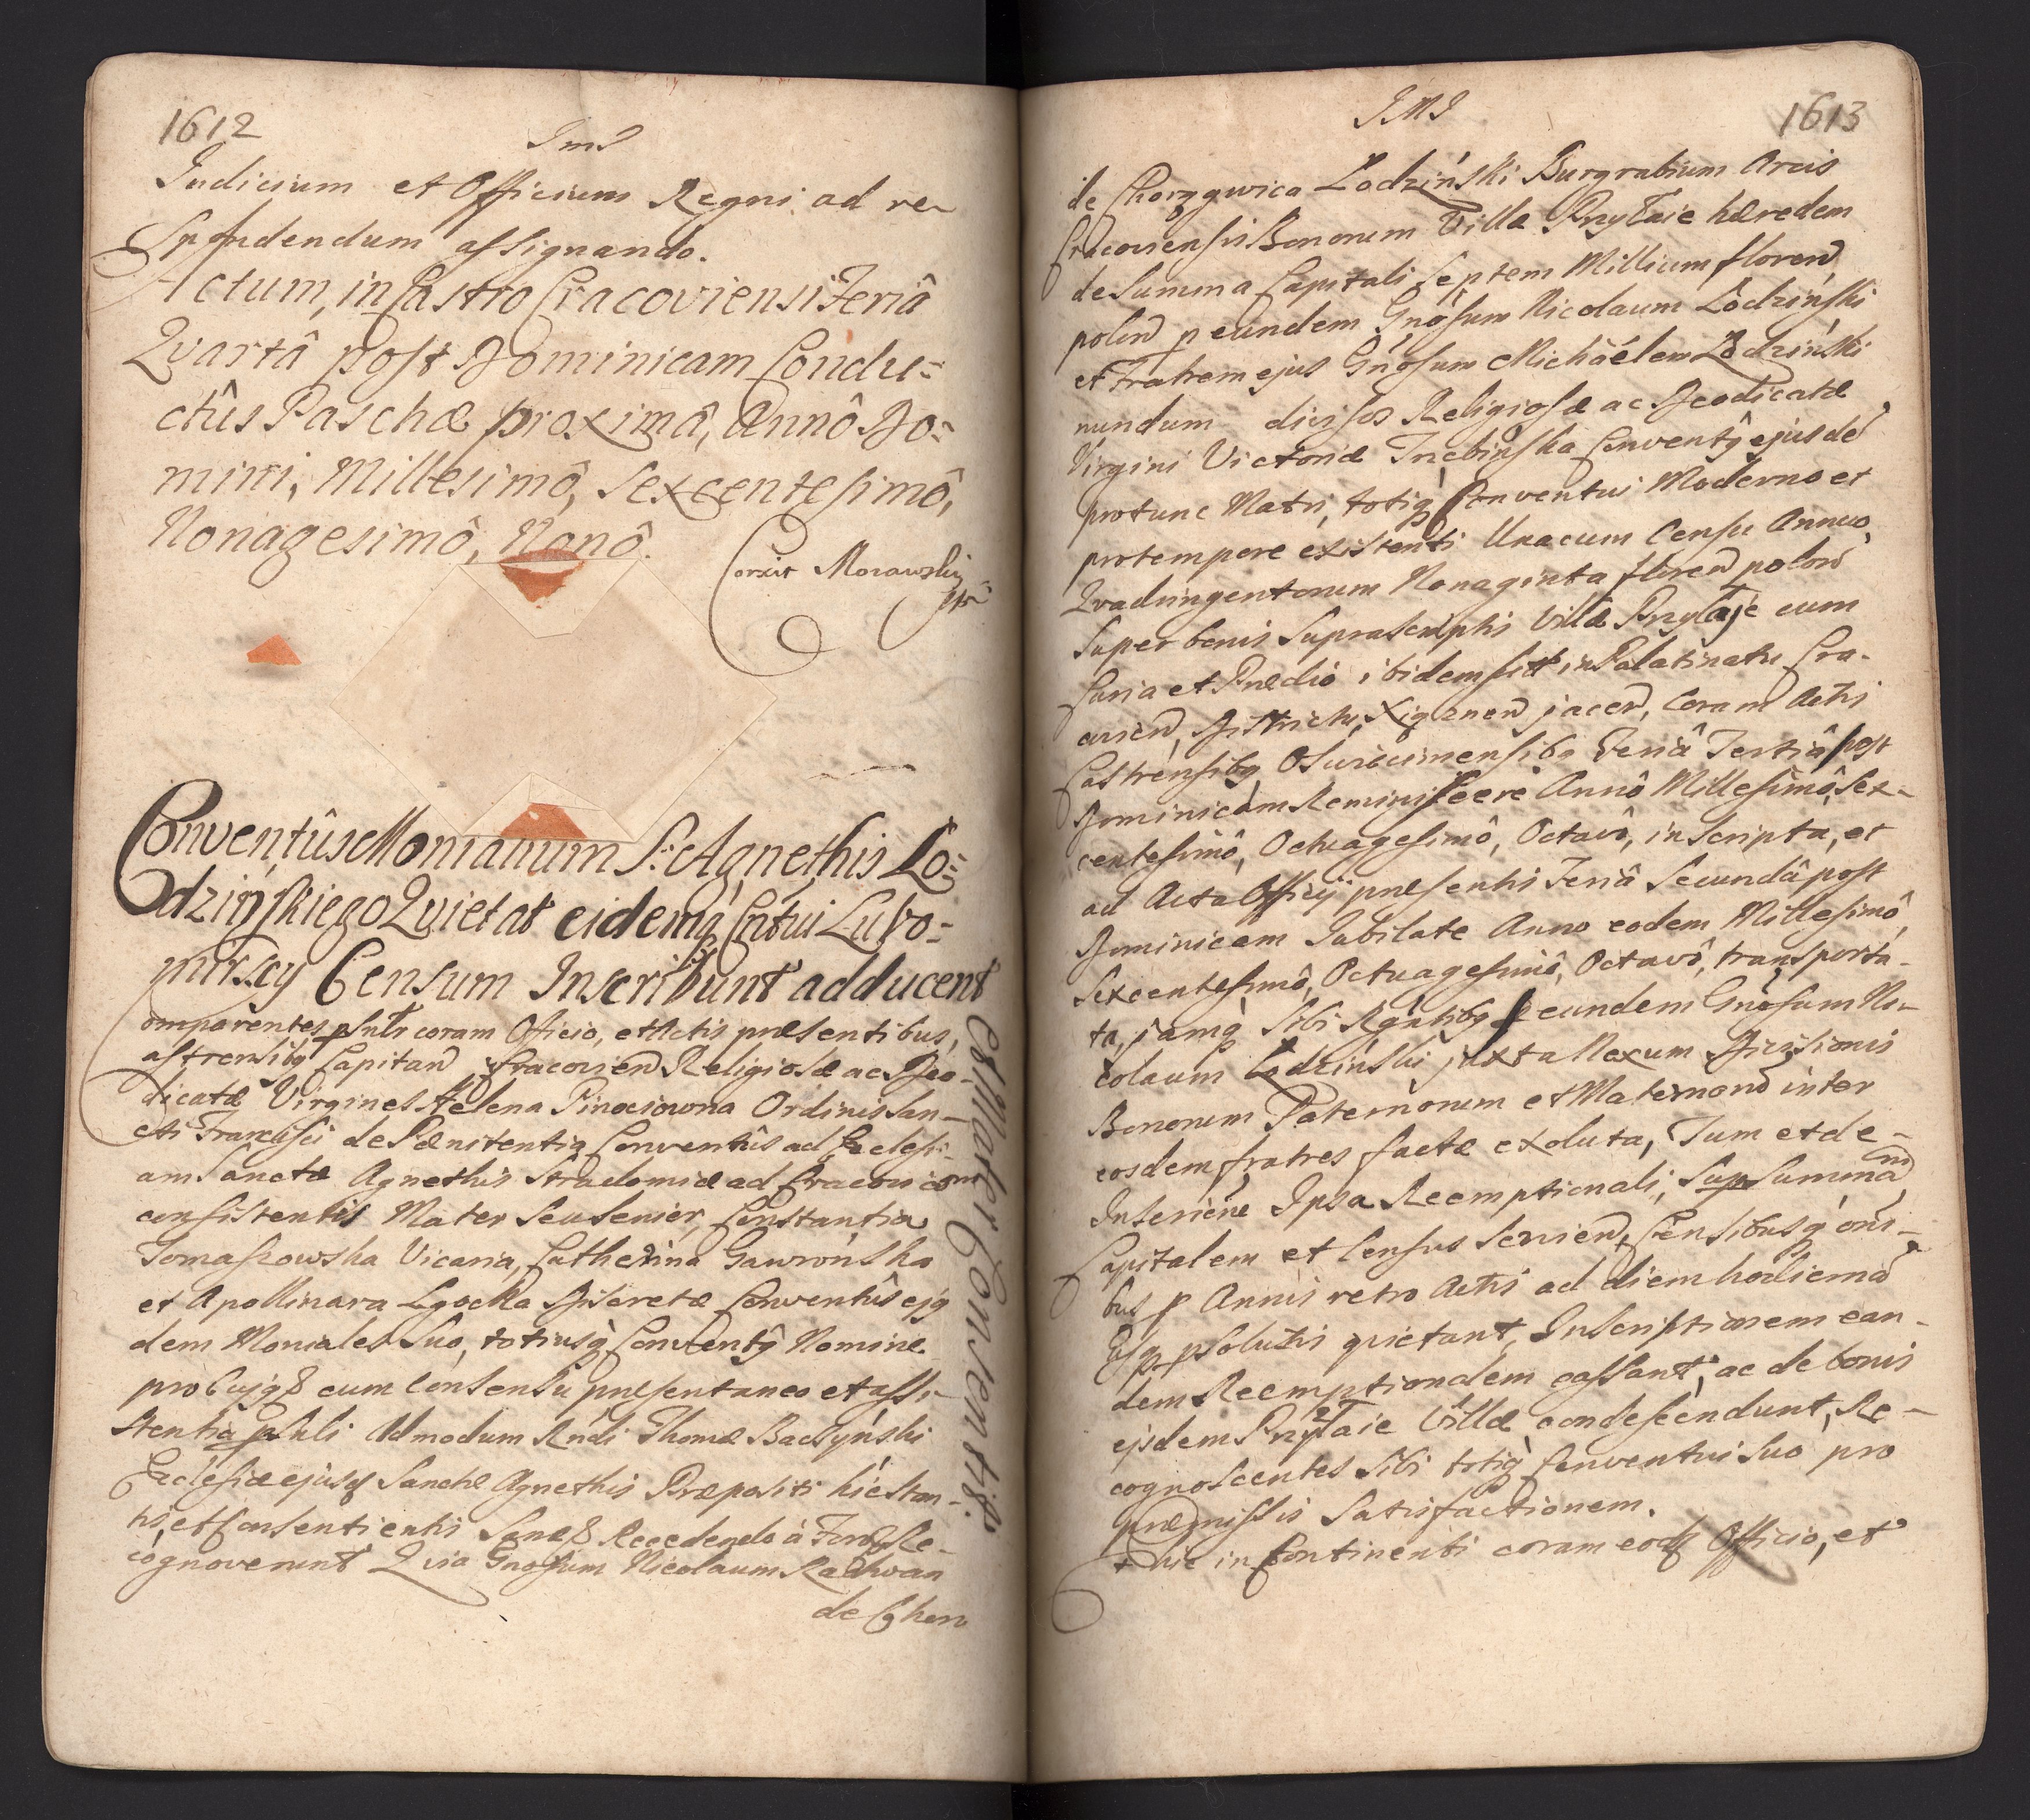 1612
JmJ
Judicium et Officium Regni ad re-
spondendum assignando.
Actum, in Castro Cracoviensi Feriâ
Qvartâ post Dominicam Condu=
ctûs Paschæ proximâ, Annô Do=
mini, Millesimô, Sexcentesimô,
Nonagesimô, Nonô.
Corxit Morawski
mp
Conventûs Monialium S. Agnethis Lo=
dzińskiego Qvietat eidemq Cntui Lubo=
mirscy Censum Inscribunt adducent
est Mater Consentis.
Comparentes psntr coram Officio, et Actis præsentibus,
Castrensibq Capitan Cracovien Religiosæ ac Deo-
dicatæ Virgines Helena Pinociowna Ordinis San-
cti Francisci de Pænitentia Conventûs ad Ecclesi-
am Sanctæ Agnethis Stradomiæ ad Cracoviam
consistentis Mater seu Senior, Constantia
Tomaszowska Vicaria, Catherina Gawrońska
et Apollinara Lgocka Discretæ Conventûs ejq
dem Moniales suo, totiusq Conventq Nomine
pro Cujq cum Consensu præsentaneo et assi-
stentia psnli Admodum Rndi Thomæ Baczyński
Ecclesiæ ejusd Sanctæ Agnethis Præpositi hic stan-
tis, et Consentientis Sanæ Recedendo à Foro Re-
cognoverunt Qvia Gnosum Nicolaum Radwan
de Chorz
JMJ
1613
de Chorzgwica Lodziński Burgrabium Arcis
Cracoviensis Bonorum Villæ Przytaie hæredem
de Summa Capitali Septem Millium floren
polon p eundem Gnosum Nicolaum Lodziński
et Fratrem ejus Gnosum Michäelem Lodziński
nundum divisos Religiosæ ac Deodicatæ
Virgini Victoriæ Trzebińska Conventq ejusde
protunc Matri, totiq Conventui Moderno et
protempore existenti Unacum Censu Annuo
Qvadringentorum Nonaginta floren polon
super bonis suprascriptis Villæ Przytaje cum
Curia et Prædio ibidem sitt in Palatinatu Cra-
covien, Districtu Xigznen jacen, Coram Actis
Castrensibq Oswiecimensibq Feriâ Tertiâ post
Dominicam Reminiscere Annô Millesimô, Sex-
centesimô, Octuagesimô, Octavô, inscripta, et
ad Acta Officij præsentis Feriâ Secundâ post
Dominicam Jubilate Anno eodem Millesimô,
Sexcentesimô, Octuagesimô, Octavô, transporta-
ta, jamq sibi Rgntibq p eundem Gnosum Ni-
colaum Lodziński juxta Nexum Divisionis
Bonorum Paternorum et Maternorũ inter
eosdem fratres factæ exoluta, Tum et de
Inscriene Ipsa Reemptionali, Sup Summam
Capitalem et Census Servien, Censibusq oni-
bus p Annis retro Actis ad diem hodierna
usq psolutis quietant, Inscriptionem ean-
dem Reemptionalem cassant, ac de bonis
ejsdem Przytaie Villæ condescendunt, Re-
cognoscentes sibi totiq Conventui suo pro
præmissis Satisfactionem.
Et hic in Continenti coram eod Officio, et